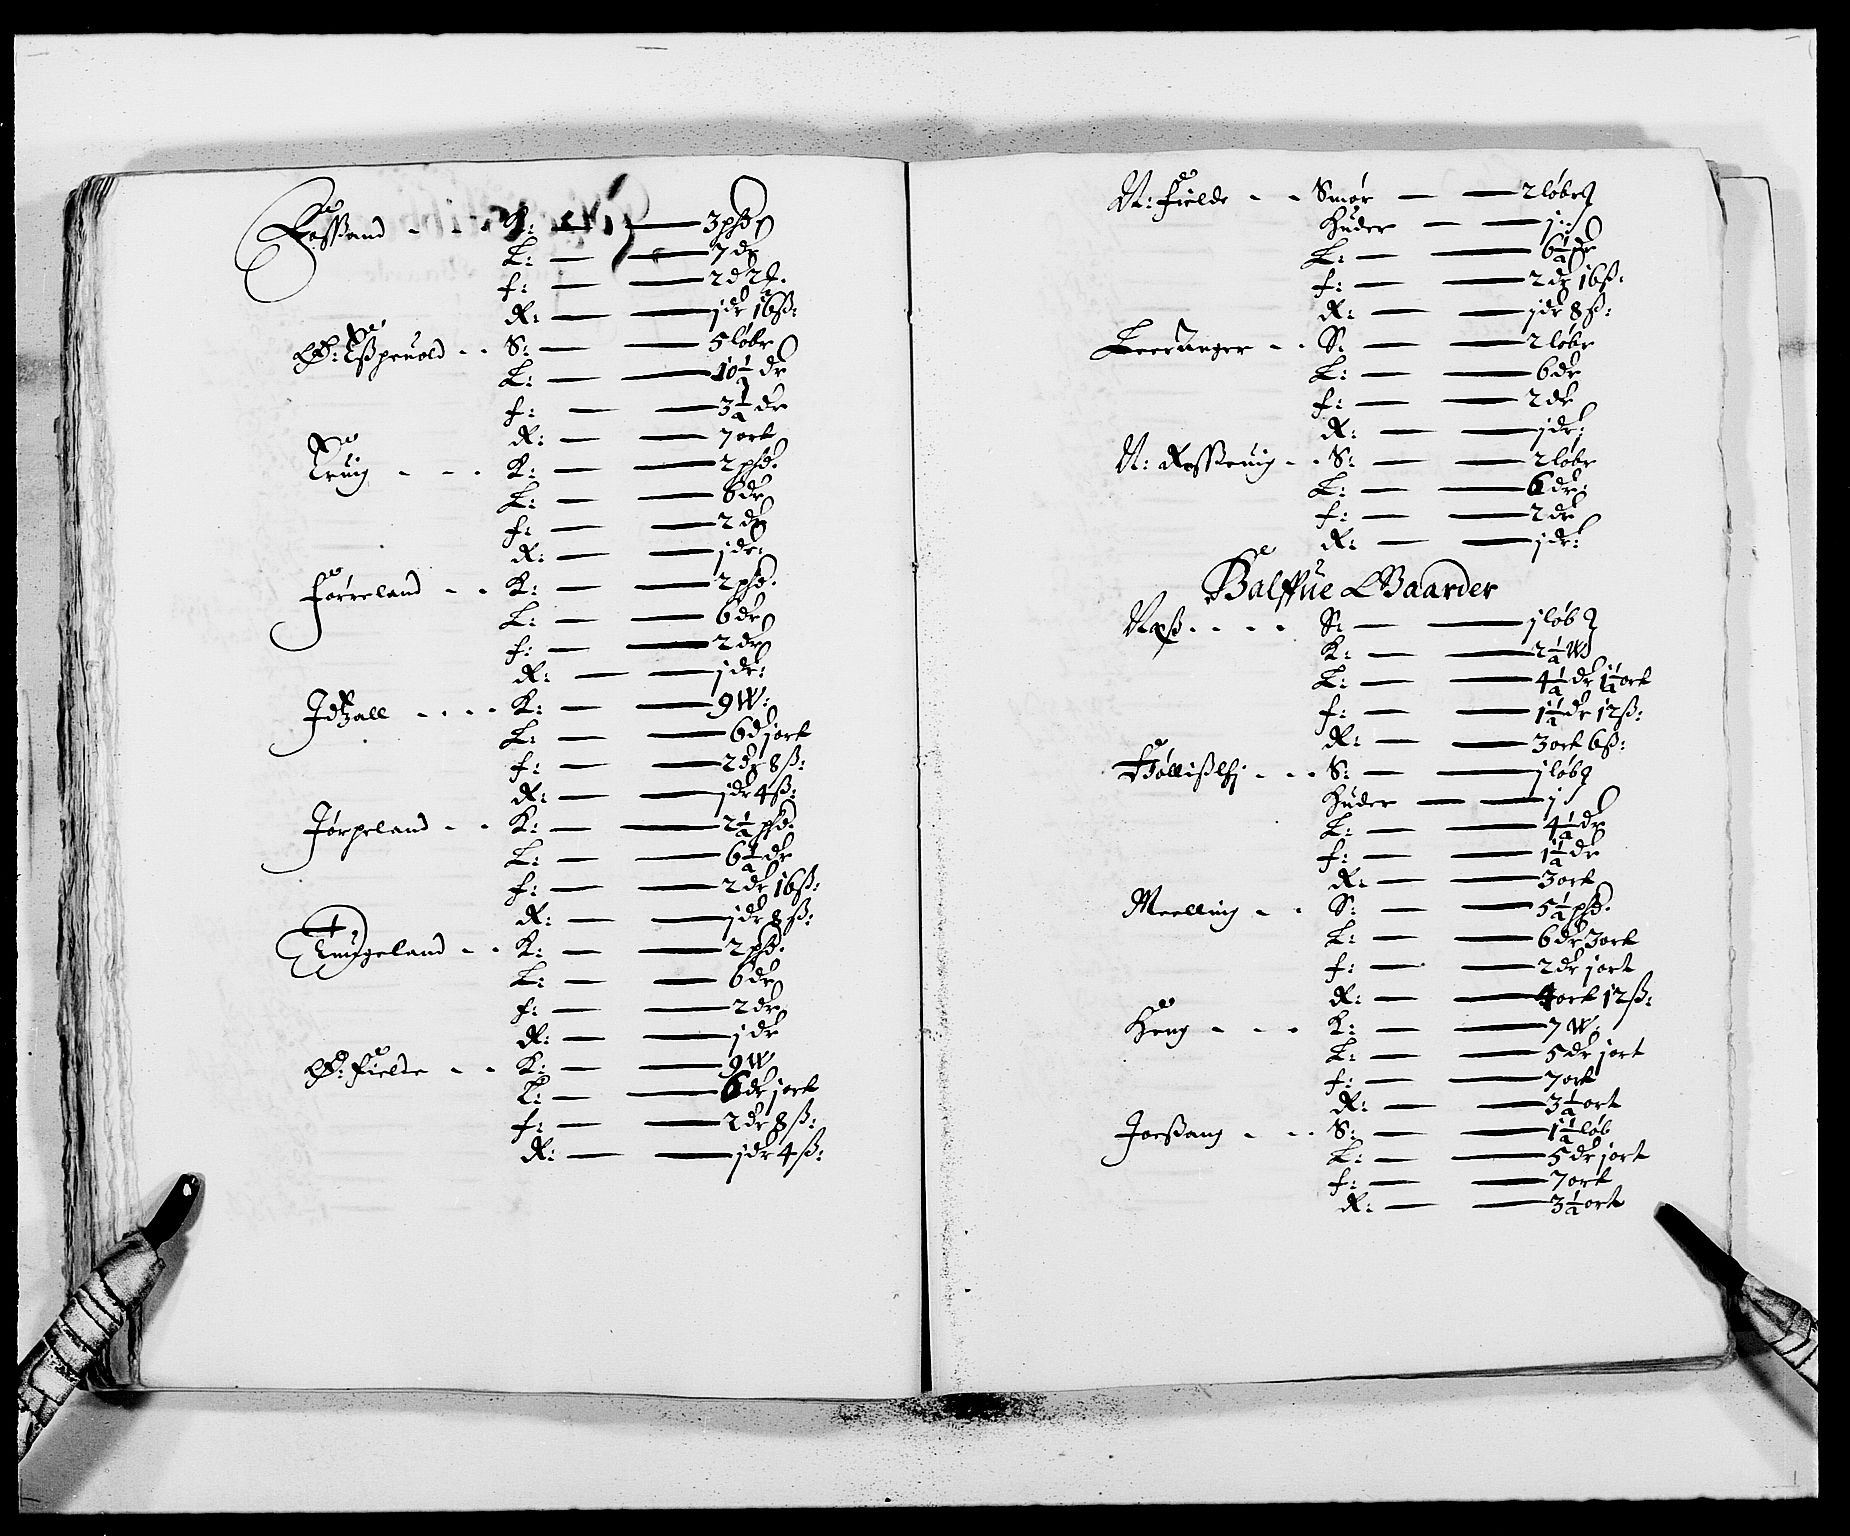 Fossand - - K: — — 3 phd
L: — — 7 dr
f: — — 2 d 2
R: — — j dr 16 ß:
Ø: Eßpeuold - - S: — — 5 løbr
L: — — 10 1/2 dr
f: — — 3 1/2 dr
R: — — 7 ort
- - - K: — — 2 phd.
L: — — 6 dr
f: — — 2 dr
R: — — j dr:
Førreland - - K: — — 2 phd.
L: — — 6 dr
f: — — 2 dr
R: — — j dr:
Idzall - - - - K: — — 9 W:
L: — — 6 d j ort
f: — — 2 dr 8 ß:
R: — — j dr 4 ß:
Jørpeland - - K: — — 2 1/2 phd.
L: — — 6 1/2 dr
f: — — 2 dr 16 ß:
R: — — j dr 8 ß:
Tungeland - - K: — — 2 phd.
L: — — 6 dr
f: — — 2 dr
R: — — j dr
Ø: fielde - - K: — — 9 W
L: — — 6 dr j ort
f: — — 2 dr 8 ß:
R: — — j dr 4 ß:
N: fielde - - Smør — — 2 løbr
Huder — — j:
L: — — 6 1/2 dr
f: — — 2 dr 16 ß:
R: — — j dr 8 ß:
Leeranger - - S: — — 2 løbr
L: — — 6 dr
f: — — 2 dr
R: — — j dr:
N: Roßeuig - - S: — — 2 løbr
L: — — 6 dr:
f: — — 2 dr
R: — — j dr:
Halffue Gaarder
Næß - - - - S: — — j løb
K: — — 2 1/2 W
L: — — 4 1/2 dr 1 1/2 ort
f: — — 1 1/2 dr 12 ß:
R: — — 3 ort 6 ß:
- - - S: — — j løb
Huder — — j
L: — — 4 1/2 dr
f: — — 1 1/2 dr
R: — — 3 ort
Meelling - - S: — — 5 1/2 phd.
L: — — 6 dr 3 ort
f: — — 2 dr j ort
R: — — 4 ort 12 ß:
Heng - - - K: — — 7 W.
L: — — 5 dr j ort
f: — — 7 ort
R: — — 3 1/2 ort
Jorßang - - - S: — — 1 1/2 løb
L: — — 5 dr j ort
f: — — 7 ort
R: — — 3 1/2 ort